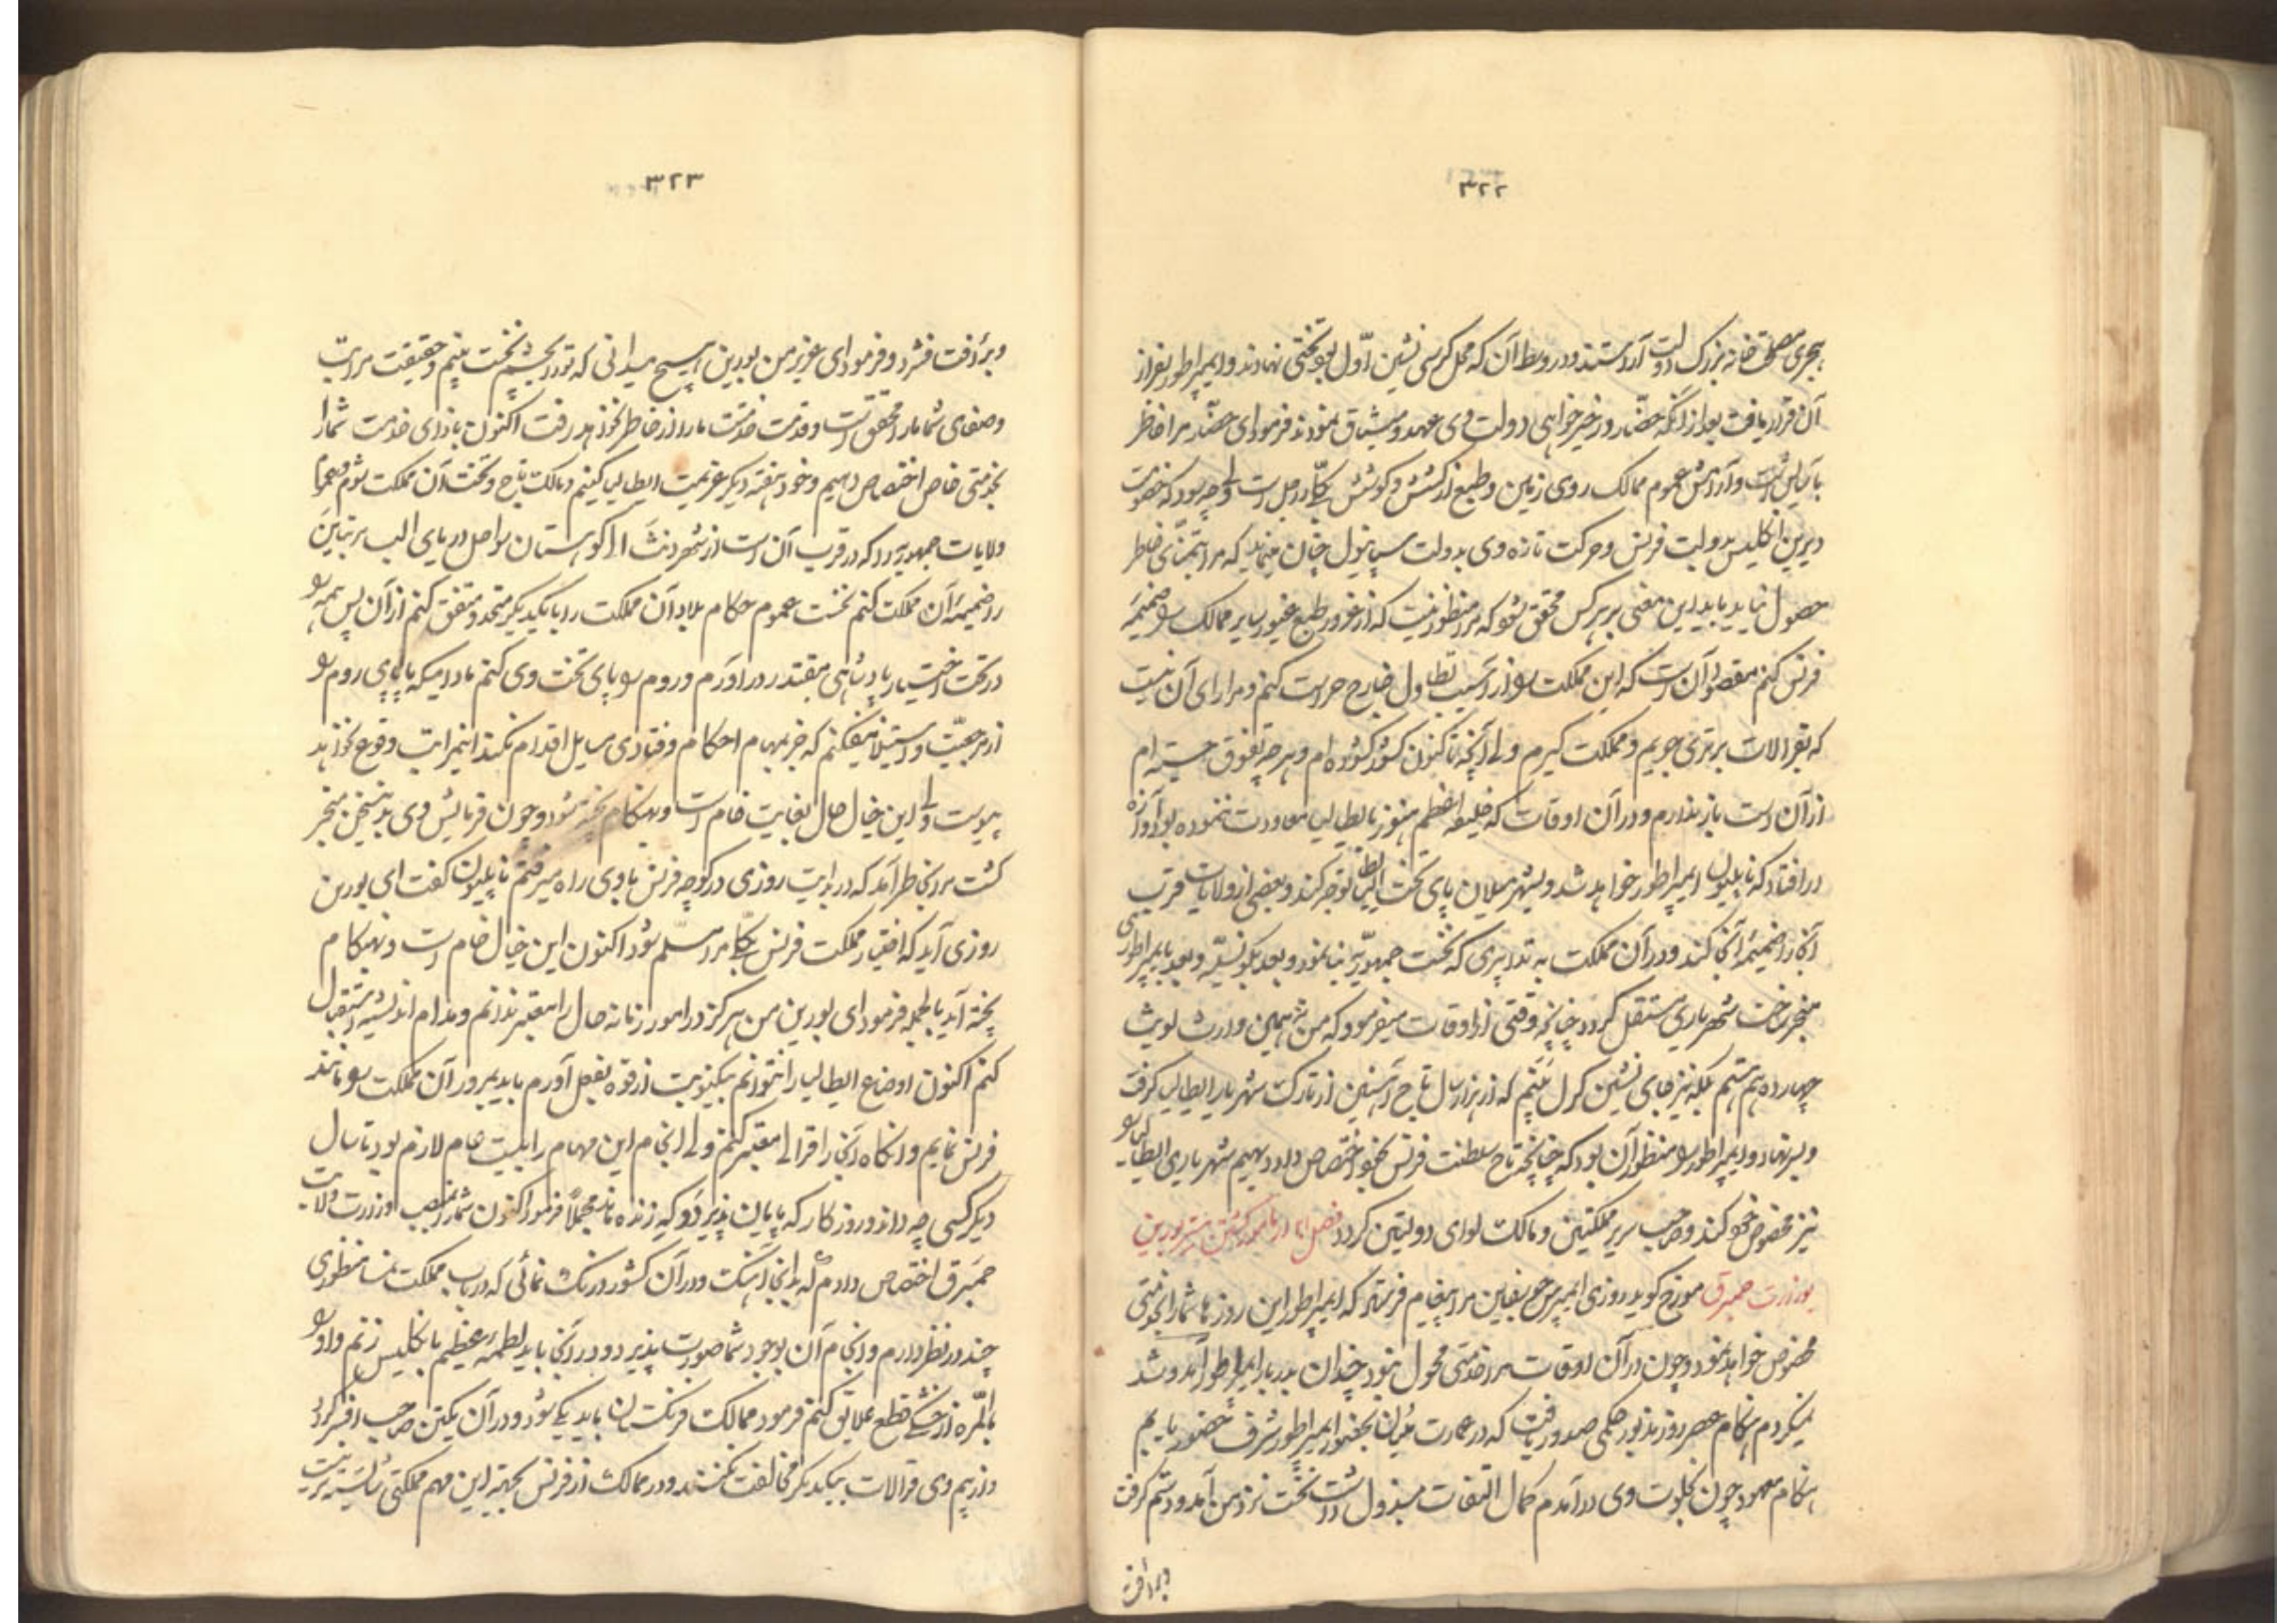 ۳۲۲
هجری مصلحتخانه بزرگ دولت آراستند و در وسط آن که محل کرسی نشین اول بود تختی نهادند و ایمپراطور بفراز
آن قرار یافت بعد از آنکه حضار در خیرخواهی دولت وی عهد و میثاق نمودند فرمود ای حضار مرا خاطر
بآسایش است و آرامش عموم ممالک روی زمین و طبع از کشش و کوشش بکلی است ولی چه سود که خصومت
دیرین انکلیس بدولت فرنس و حرکت تازه وی بدولت سپانیول چنان مینماید که مرا تمنای خاطر
حصول نیاید باید این معنی بر هر کس محقق شود که مرا منظور نیست که از غرور طبع غیور سایر ممالک را ضمیمه
فرنس کنم مقصود آن است که این مملکت را از آسیب تطاول خارج حراست کنم و مرا رای آن نیست
که بقرالات برتری جویم و مملکت گیرم ولی آنچه تاکنون کشور گشوده ام و بر هر چه تفوق جسته ام
از آن دست باز ندارم و در آن اوقات که خلیفه اعظم هنوز بایطالیا معاودت ننموده بود آوازه
در افتاد که ناپلیون ایمپراطور خواهد شد و بشهر میلان پای تخت ایطالیا توجه کند و بعضی از ولایات قرب
آنجا را ضمیمه آنجا کند و در آن مملکت به تدابیری که نخست جمهوریه بنا نمود و بعد و بعد بایمپراطوری
منجر ساخت شهریاری مستقل گردد چنانچه وقتی از اوقات میفرمود که من نه همین وارث لویث
چهارده هم هستم بلکه نیز جای نشین کرل منم که از هزار سال تاج آهنین از تارک شهریار ایطالیا گرفت
و بسر نهاد و ایمپراطور را منظور آن بود که چنانچه تاج سلطنت فرنس بخود اختصاص داد دیهیم شهریاری ایطالیا را
نیز مخصوص خود کند و صاحب سریر مملکتین و مالک لوای دولتین گردد فصل در نامزد گشتن مستر بورین
بوزارت همبرق مورخ گوید روزی ایمپرس جوزفین مرا پیغام فرستاد که ایمپراطور این روزها شما را بخدمتی
مخصوص خواهد نمود و چون در آن اوقات مرا خدمتی محول نبود چندان بدربار ایمپراطور آمد و شد
نمیکردم هنگام عصر روز مزبور حکمی صدور یافت که در عمارت بحضور ایمپراطور شرف حضور یابم
هنگام معهود چون بخلوت وی درآمدم کمال التفات مبذول داشت نخست نزد من آمد و دستم گرفت
و برأفت
۳۲۳
و برأفت فشرد و فرمود ای عزیز من بورین هیچ میدانی که تو را بچشم نخست بینم و حقیقت مراتب
و صفای شما ما را محقق است و قدمت خدمت ما را از خاطر نخواهد رفت اکنون بازای خدمت شما را
بخدمتی خاص اختصاص دهیم و خود هفته دیگر عزیمت ایطالیا کنیم و مالک تاج و تخت آن مملکت شوم و عموم
ولایات جمهوریه را که در قرب آن است از شهر ونث الی کوهستان سواحل دریای الب
را ضمیمه آن مملکت کنم نخست عموم حکام بلاد آن مملکت را با یکدیگر متحد و متفق کنم از آن پس همه را
در تحت اختیار پادشاهی مقتدر در آورم و روم را پای تخت وی کنم مادامیکه پاپای روم را
از مرجعیت و استیلا نیفکنم که جز بمهام احکام و فتاوی مسایل اقدام نکند این مراتب وقوع نخواهد
پیوست ولی این خیال حال بغایت خام است و بهنگام پخته شود و چون فرمایش وی بدین سخن منجر
گشت مرا بخاطر آمد که در بدایت روزی در کوچه فرنس با وی راه میرفتم ناپلیون گفت ای بورین
روزی آید که اختیار مملکت فرنس بکلی مرا مسلم شود اکنون این خیال خام است و بهنگام
پخته آید بالجمله فرمود ای بورین من هرگز در امور زمانه حال را معتبر ندانم و مدام اندیشه استقبال
کنم اکنون اوضاع ایطالیا را نتوانم بیکنوبت از قوه بفعل آورم باید بمرور آن مملکت را مانند
فرنس نمایم و آنگاه آنجا را قرالی معتبر کنم ولی انجام این مهام را بیست عام لازم بود تا سال
دیگر کسی چه داند و روزگار که پایان پذیرد و که زنده ماند مجملا فرمود اکنون شما را بمنصب وزارت ولایت
همبرق اختصاص دادم که بدانجا آهنگ و در آن کشور درنگ نمائی که در باب مملکت نمسا منظوری
چند در نظر دارم و انجام آن بوجود شما صورت پذیرد و در آنجا باید لطمه عظیم بانکلیس زنم و او را
بالمره از خشکی قطع علایق کنم فرمود ممالک فرنکستان باید یکی شود و در آن یکتن صاحب افسر گردد
و از بیم وی قرالات بیکدیگر مخالفت نکنند و در ممالک از فرنس بجهة این مهم مملکتی شایسته تر نیست